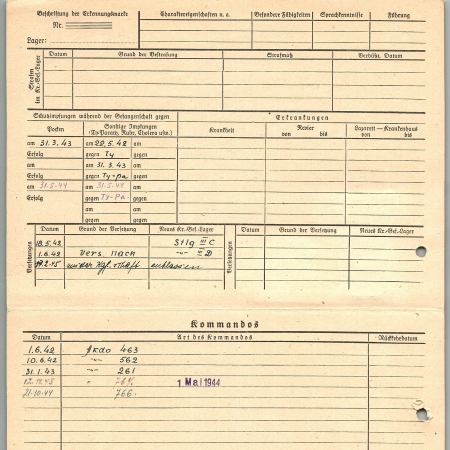 Beschriftung der Erkennungsmarke
Nr.
Lager:
Charaktereigenschaften u. a.
Besondere Fähigkeiten
Sprachkenntnisse
Führung
Strafen im Kr.-Gef.-Lager
Datum
Grund der Bestrafung
Strafmaß
Verbüßt, Datum
Schutzimpfungen während der Gefangenschaft gegen
Erkrankungen
Pocken
Sonstige Impfungen
(Ty-Paraty, Ruhr, Cholera usw.)
Krankheit
Revier
von bis
Lazarett — Krankenhaus
von bis
am 31.3.43 am 28.5.42 am
Erfolg gegen Ty gegen
am am 31.3.43 am
Erfolg gegen Ty-pa gegen
am 31.5.44 am 31.5.44 am
Erfolg gegen Ty-Pa gegen
am am
gegen gegen
Versetzungen
Datum
Grund der Versetzung
Neues Kr.-Gef.-Lager
Versetzungen
Datum
Grund der Versetzung
Neues Kr.-Gef.-Lager
18.5.42 Stlg III C
1.6.42 Vers. nach -"- III D
entlassen
Kommandos
Datum
Art des Kommandos
Rückkehrdatum
1.6.42 Arkdo 463
10.6.42 -"- 562
31.1.43 -"- 261
1 Mai 1944
21.10.44 766